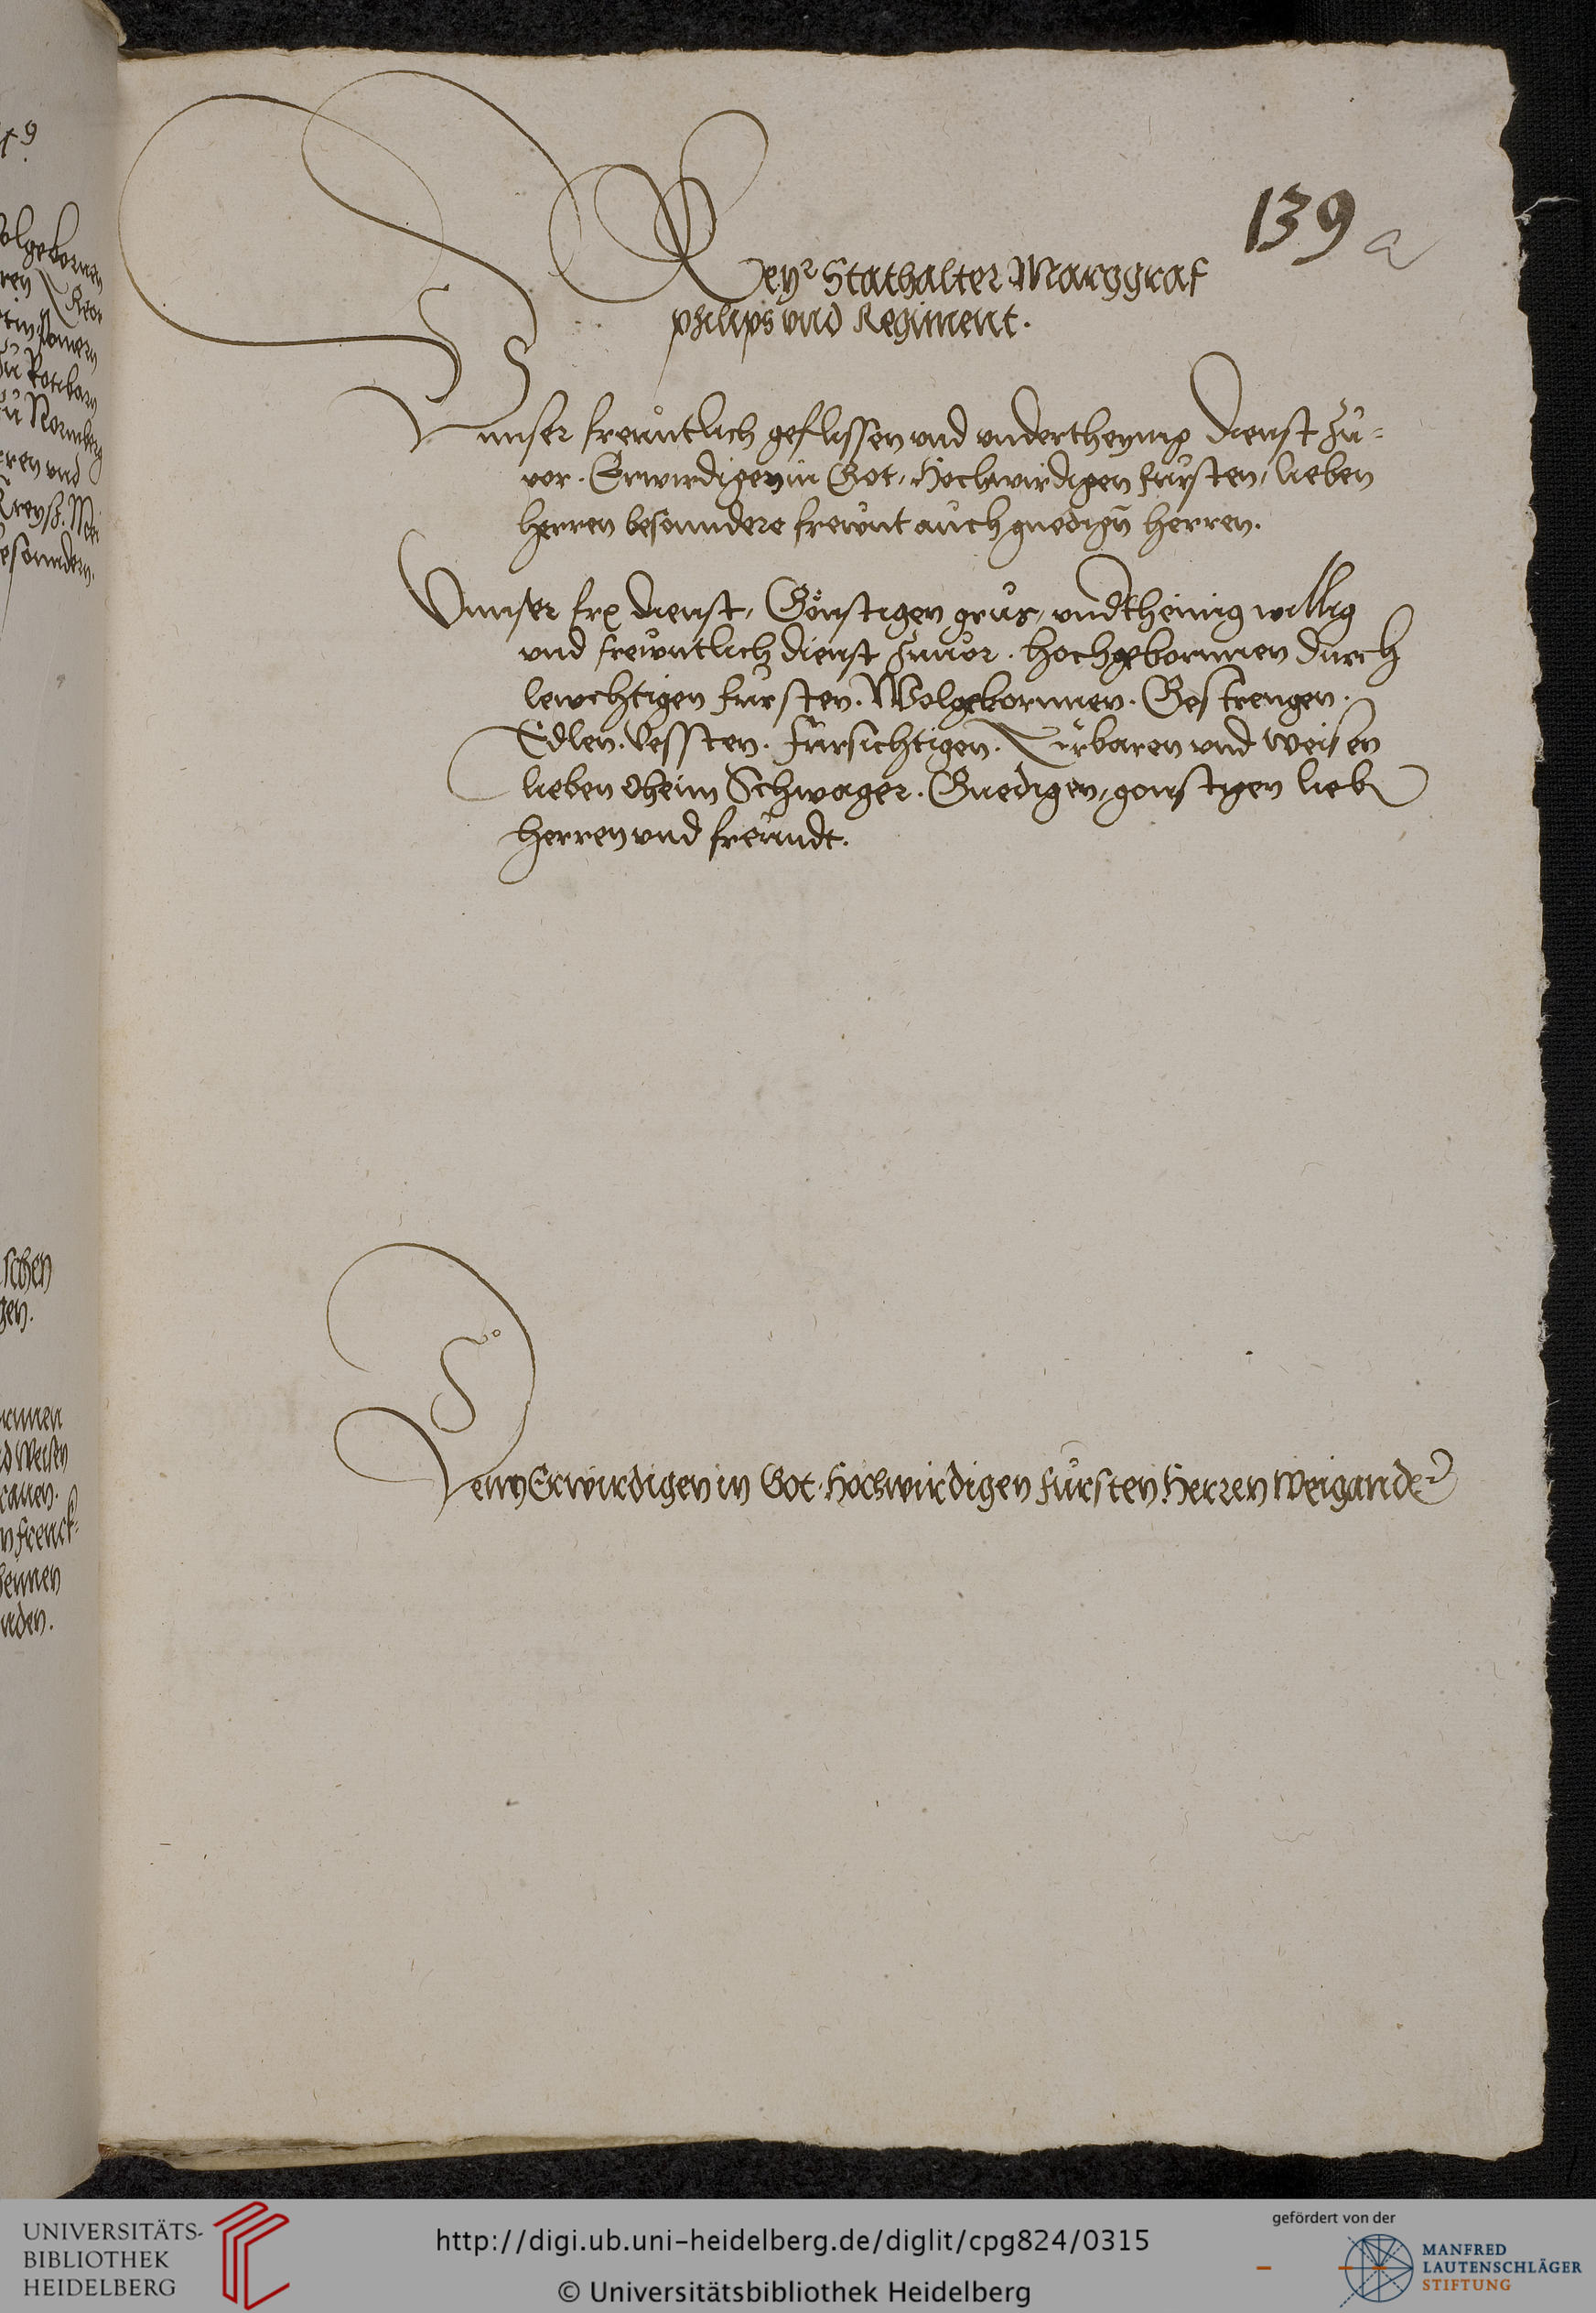 139 a
Key2 Stathalter Marggraf
philips und Regiment.
Unnser freuntlich geflissen und undertheynig dienst zu-
vor. Erwirdigen in Got, Hochwirdigen fursten, lieben
herren besonndere freunt auch gnedign herren.
Unnser dienst, Gonstigen grus, undtheinig willig
und freuntlich dienst zuvor. hochgebornnen durch
leuchtigen fursten. Wolgebornnen. Gestrengen.
Edlen. Vessten. fursichtigen. Erbaren und weisen
lieben Oheim Schwager. Gnedigen, gonstigen lieb
herren und freundt.
Denn Erwirdigen in Got. Hochwirdigen fursten Herren Weigande
olgebornen
ren
zu Rotnbarg
zu Nornberg
eren und
Kreyß.
esonndern.
schen
gen.
d Weisen
n frenck-
nden.
UNIVERSITÄTS-
BIBLIOTHEK
HEIDELBERG
http://digi.ub.uni-heidelberg.de/diglit/cpg824/0315
© Universitätsbibliothek Heidelberg
gefördert von der
MANFRED
LAUTENSCHLÄGER
STIFTUNG